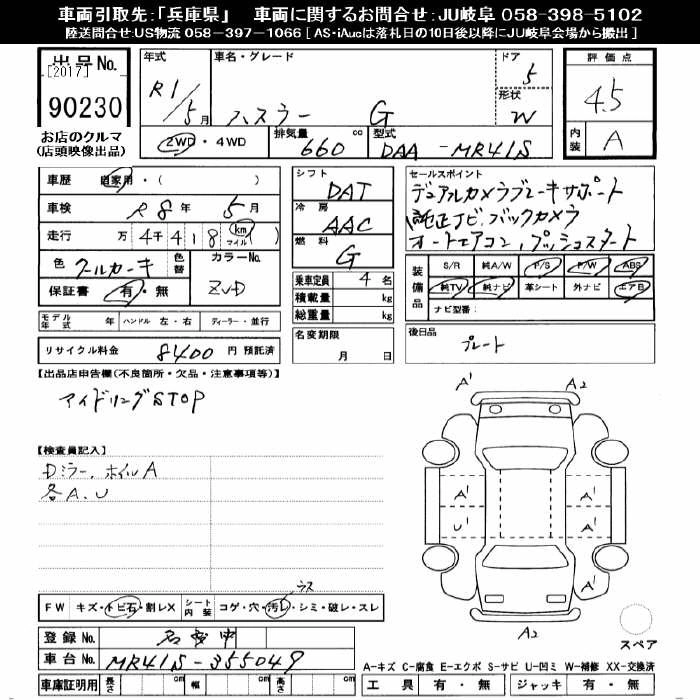 車両引取先:「兵庫県」 車両に関するお問合せ:JU岐阜 058-398-5102
陸送問合せ:US物流 058-397-1066 [ AS・iAucは落札日の10日後以降にJU岐阜会場から搬出 ]
出品No.
[2017]
90230
お店のクルマ
(店頭映像出品)
年式 R1/5月
車名・グレード ハスラー G
ドア 5
形状 W
2WD・4WD
排気量 660 cc
型式 DAA-MR41S
評価点 4.5
内装 A
車歴 自家用・( )
車検 R8年 5月
走行 万4千418 (km マイル)
色 クールカーキ
色替
カラーNo. ZVD
保証書 有・無
モデル年式 年 ハンドル 左・右 ディーラー・並行
リサイクル料金 8400 円 預託済
シフト DAT
冷房 AAC
燃料 G
乗車定員 4 名
積載量 kg
総重量 kg
名変期限
月 日
セールスポイント
デュアルカメラブレーキサポート
純正ナビ.バックカメラ
オートエアコン,プッシュスタート
装備品
S/R 純A/W P/S P/W ABS
純TV 純ナビ 革シート 外ナビ エアB
ナビ型番:
後日品
プレート
【出品店申告欄(不良箇所・欠品・注意事項等)】
アイドリングSTOP
【検査員記入】
Dミラー,ホイルA
各A.U
A' A2
A' A'
U' A'
A'
A2
スペア
ラス
FW キズ・トビ石・割レX
シート内装 コゲ・穴・汚レ・シミ・破レ・スレ
登録No. 名変中
車台No. MR41S-355049
車庫証明用 長さ cm 幅 cm 高さ cm
A-キズ C-腐食 E-エクボ S-サビ U-凹ミ W-補修 XX-交換済
工具 有・無 ジャッキ 有・無